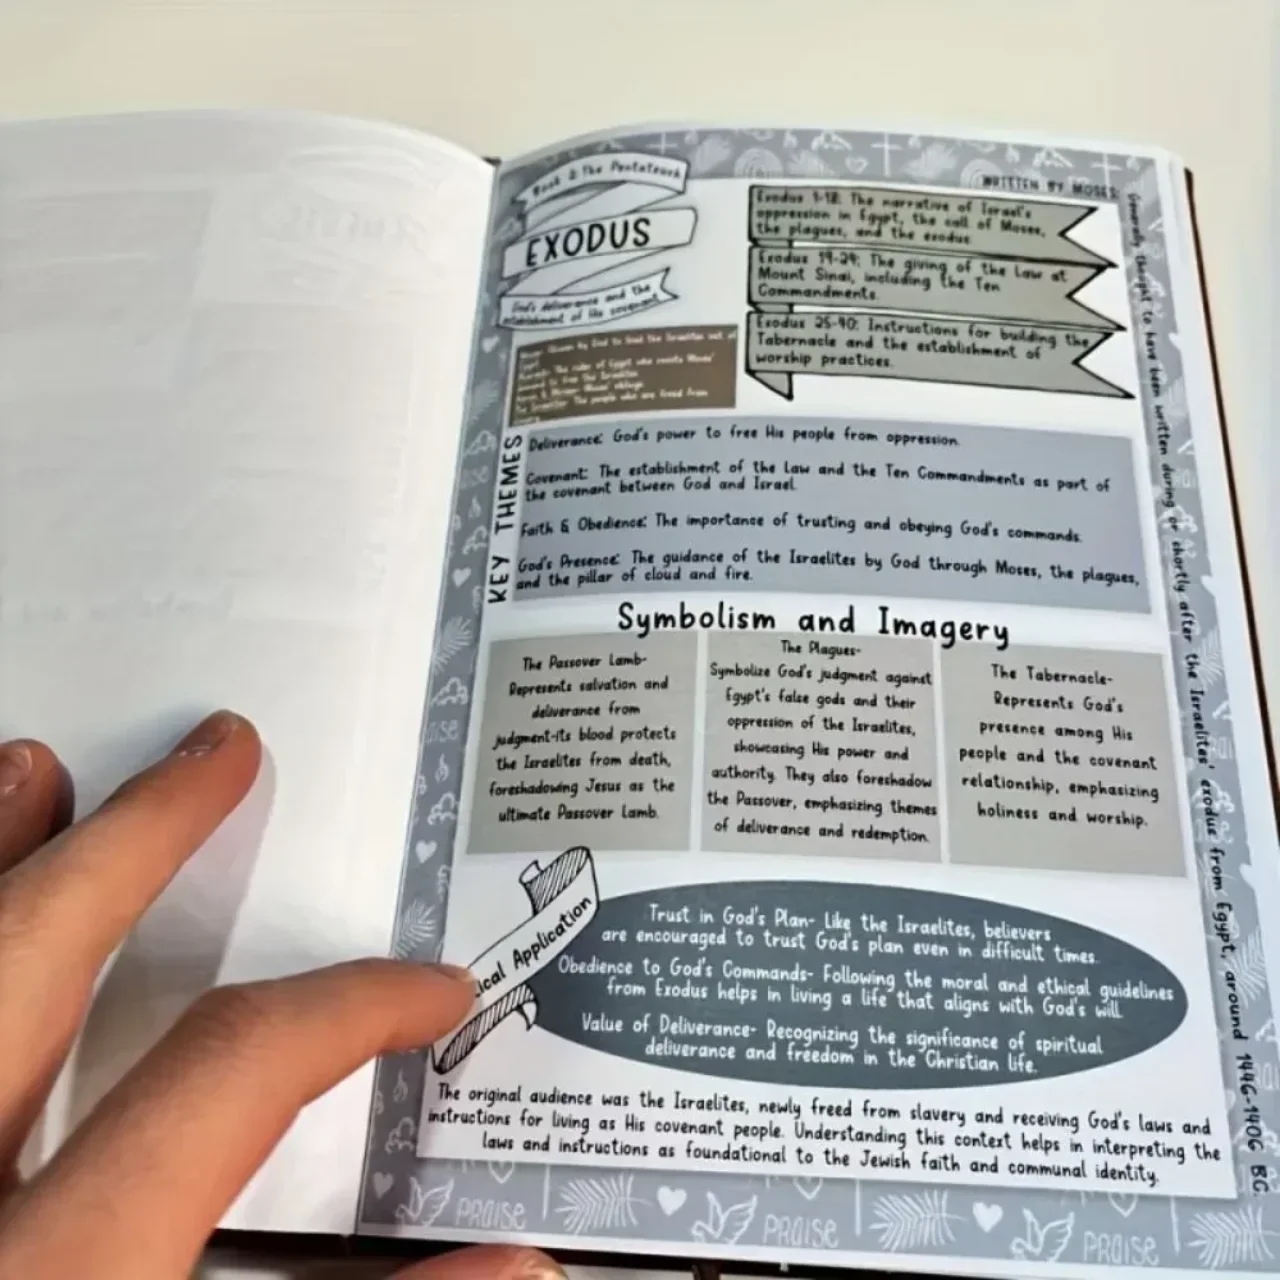 Book 2: The Pentateuch
EXODUS
God's deliverance and the
establishment of His covenant
WRITTEN BY MOSES:
Generally thought to have been written during or shortly after the Israelites' exodus from Egypt, around 1446-1406 BC.
Exodus 1-18: The narrative of Israel's
oppression in Egypt, the call of Moses,
the plagues, and the exodus
Exodus 19-24: The giving of the Law at
Mount Sinai, including the Ten
Commandments.
Exodus 25-40: Instructions for building the
Tabernacle and the establishment of
worship practices.
Moses: Chosen by God to lead the Israelites out of
Egypt
The ruler of Egypt who resists Moses'
demand to free the Israelites
Aaron & Miriam: Moses' siblings
The Israelites: The people who are freed from
KEY THEMES
Deliverance: God's power to free His people from oppression.
Covenant: The establishment of the Law and the Ten Commandments as part of
the covenant between God and Israel.
Faith & Obedience: The importance of trusting and obeying God's commands.
God's Presence: The guidance of the Israelites by God through Moses, the plagues,
and the pillar of cloud and fire.
Symbolism and Imagery
The Passover Lamb-
Represents salvation and
deliverance from
judgment-its blood protects
the Israelites from death,
foreshadowing Jesus as the
ultimate Passover Lamb.
The Plagues-
Symbolize God's judgment against
Egypt's false gods and their
oppression of the Israelites,
showcasing His power and
authority. They also foreshadow
the Passover, emphasizing themes
of deliverance and redemption.
The Tabernacle-
Represents God's
presence among His
people and the covenant
relationship, emphasizing
holiness and worship.
ical Application
Trust in God's Plan- Like the Israelites, believers
are encouraged to trust God's plan even in difficult times.
Obedience to God's Commands- Following the moral and ethical guidelines
from Exodus helps in living a life that aligns with God's will.
Value of Deliverance- Recognizing the significance of spiritual
deliverance and freedom in the Christian life.
The original audience was the Israelites, newly freed from slavery and receiving God's laws and
instructions for living as His covenant people. Understanding this context helps in interpreting the
laws and instructions as foundational to the Jewish faith and communal identity.
PRAISE
PRAISE
PRAISE